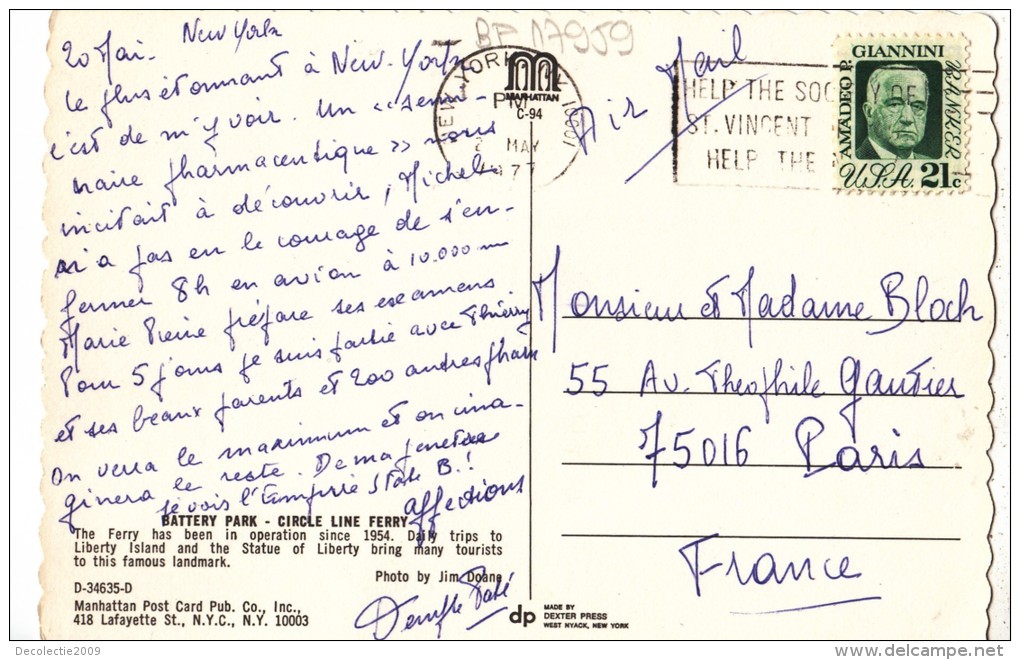 20 Mai. New York
Le plus étonnant à New-York
c'est de m'y voir. Un "semi-
naire pharmaceutique" nous
incitait à découvrir, Michel
n'a pas eu le courage de s'en-
fermer 8h en avion à 10.000 m
Marie Reine prépare ses examens
Pour 5 jours je suis partie avec Thierry
et ses beaux parents et 200 autres pharm
On verra le maximum et on ima-
ginera le reste. De ma fenêtre
je vois l'Empire State B.!
affections
BATTERY PARK - CIRCLE LINE FERRY
The Ferry has been in operation since 1954. Daily trips to
Liberty Island and the Statue of Liberty bring many tourists
to this famous landmark.
Photo by Jim Doane
D-34635-D
Manhattan Post Card Pub. Co., Inc.,
418 Lafayette St., N.Y.C., N.Y. 10003
dp
MADE BY
DEXTER PRESS
WEST NYACK, NEW YORK
BP 17959
NEW YORK, NY 10001
MANHATTAN
PM
C-94
MAY
1977
Air Mail
HELP THE SOCIETY OF
ST. VINCENT
HELP THE
AMADEO P. GIANNINI
BANKER
U.S.A. 21c
Monsieur et Madame Bloch
55 Av. Theophile Gautier
75016 Paris
France
Decolectie2009
delcampe.net